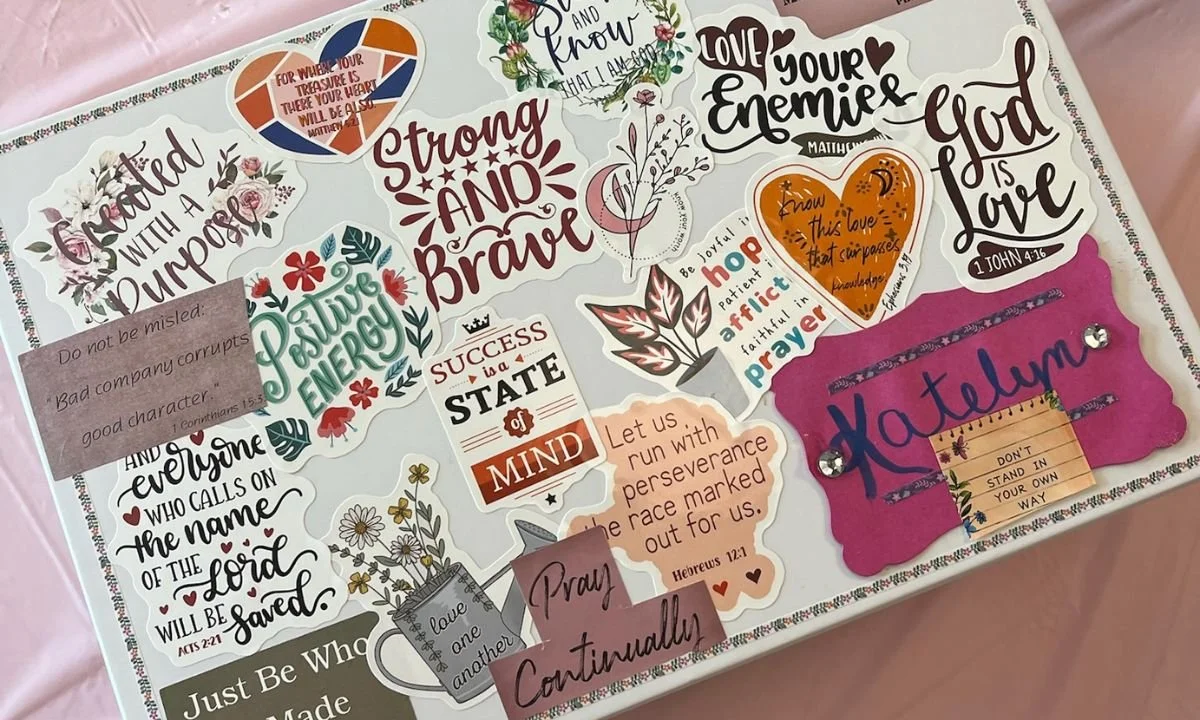 FOR WHERE YOUR
TREASURE IS
THERE YOUR HEART
WILL BE ALSO.
AND
Know
THAT I AM GOD
LOVE YOUR
Enemies
MATTHEW
God
IS
Love
1 JOHN 4:16
Created
WITH A
Purpose
Strong
AND
Brave
know your worth
Know
this love
that surpasses
knowledge.
Ephesians 3:19
Be joyful i
hop
patient
afflict
faithful in
prayer
Do not be misled:
"Bad company corrupts
good character."
1 Corinthians 15:3
Positive
ENERGY
SUCCESS
is a
STATE
of
MIND
Katelyn
DON'T
STAND IN
YOUR OWN
WAY
Let us
run with
perseverance
the race marked
out for us.
Hebrews 12:1
AND
everyone
WHO CALLS ON
the name
OF THE Lord
WILL BE Saved.
ACTS 2:21
love
one
another
Pray
Continually
Just Be Who
Made